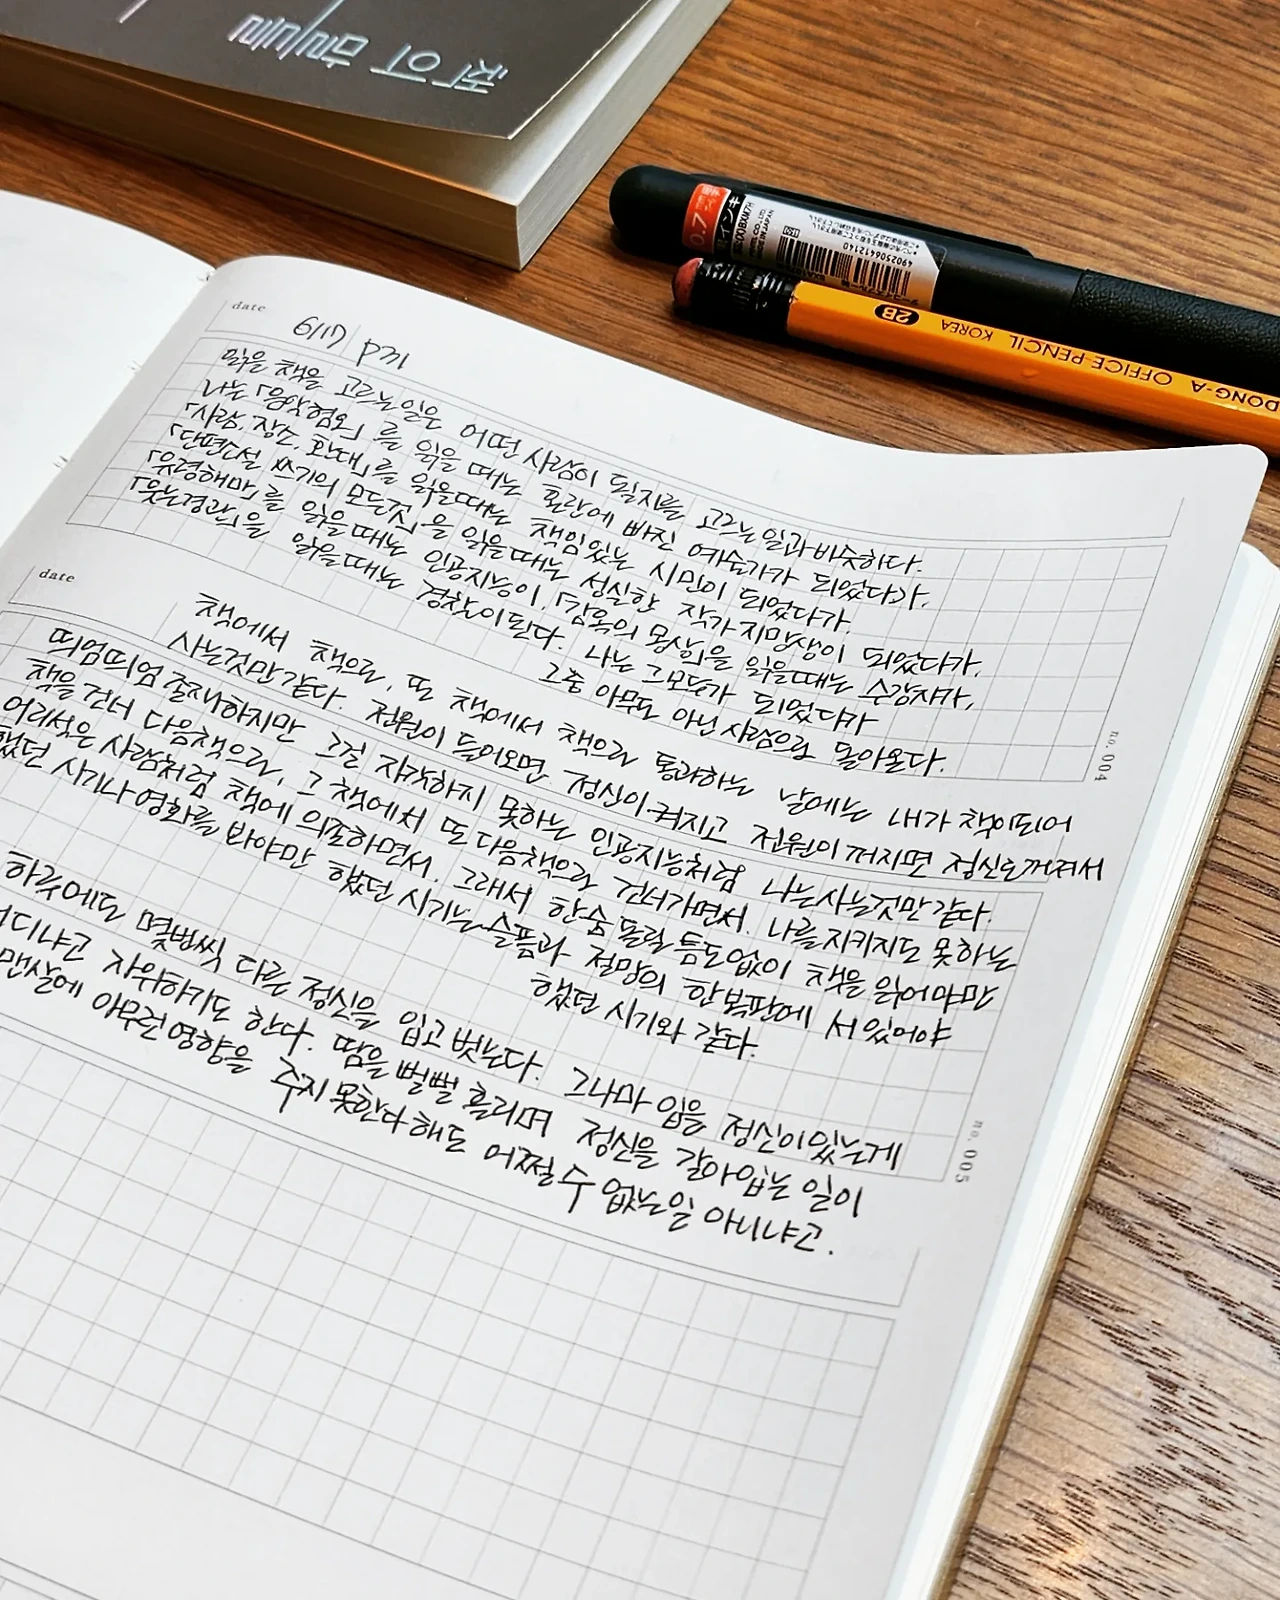 0.7
4902506412140
MADE IN JAPAN
2B
DONG-A OFFICE PENCIL KOREA
date
6/17 P71
읽을 책을 고르는 일은 어떤 사람이 될지를 고르는 일과 비슷하다.
나는 「음악혐오」를 읽을 때는 혼란에 빠진 예술가가 되었다가,
「사람, 장소, 환대」를 읽을때는 책임있는 시민이 되었다가.
「단편소설 쓰기의 모든것」을 읽을때는 성실한 작가지망생이 되었다가,
「유령해마」를 읽을때는 인공지능이, 「감옥의 몽상」을 읽을때는 수감자가,
「웃는경관」을 읽을때는 경찰이 된다. 나는 그 모두가 되었다가
그중 아무도 아닌 사람으로 돌아온다.
no. 004
date
책에서 책으로, 또 책에서 책으로 통과하는 날에는 내가 책이되어
사는것만 같다. 전원이 들어오면 정신이 켜지고 전원이 꺼지면 정신도꺼져서
띄엄띄엄 존재하지만 그걸 자각하지 못하는 인공지능처럼 나는사는것만 같다.
책을 건너 다음책으로, 그 책에서 또 다음책으로 건너가면서, 나를 지키지도 못하는
어리석은 사람처럼 책에 의존하면서. 그래서 한숨 돌릴 틈도 없이 책을 읽어야만
했던 시기나 영화를 봐야만 했던 시기는 슬픔과 절망의 한복판에 서 있어야
했던 시기와 같다.
하루에도 몇번씩 다른 정신을 입고 벗는다. 그나마 입을 정신이있는게
어디냐고 자위하기도 한다. 땀을 뻘뻘 흘리며 정신을 갈아입는 일이
맨살에 아무런영향을 주지 못한다 해도 어쩔 수 없는일 아니냐고.
no. 005